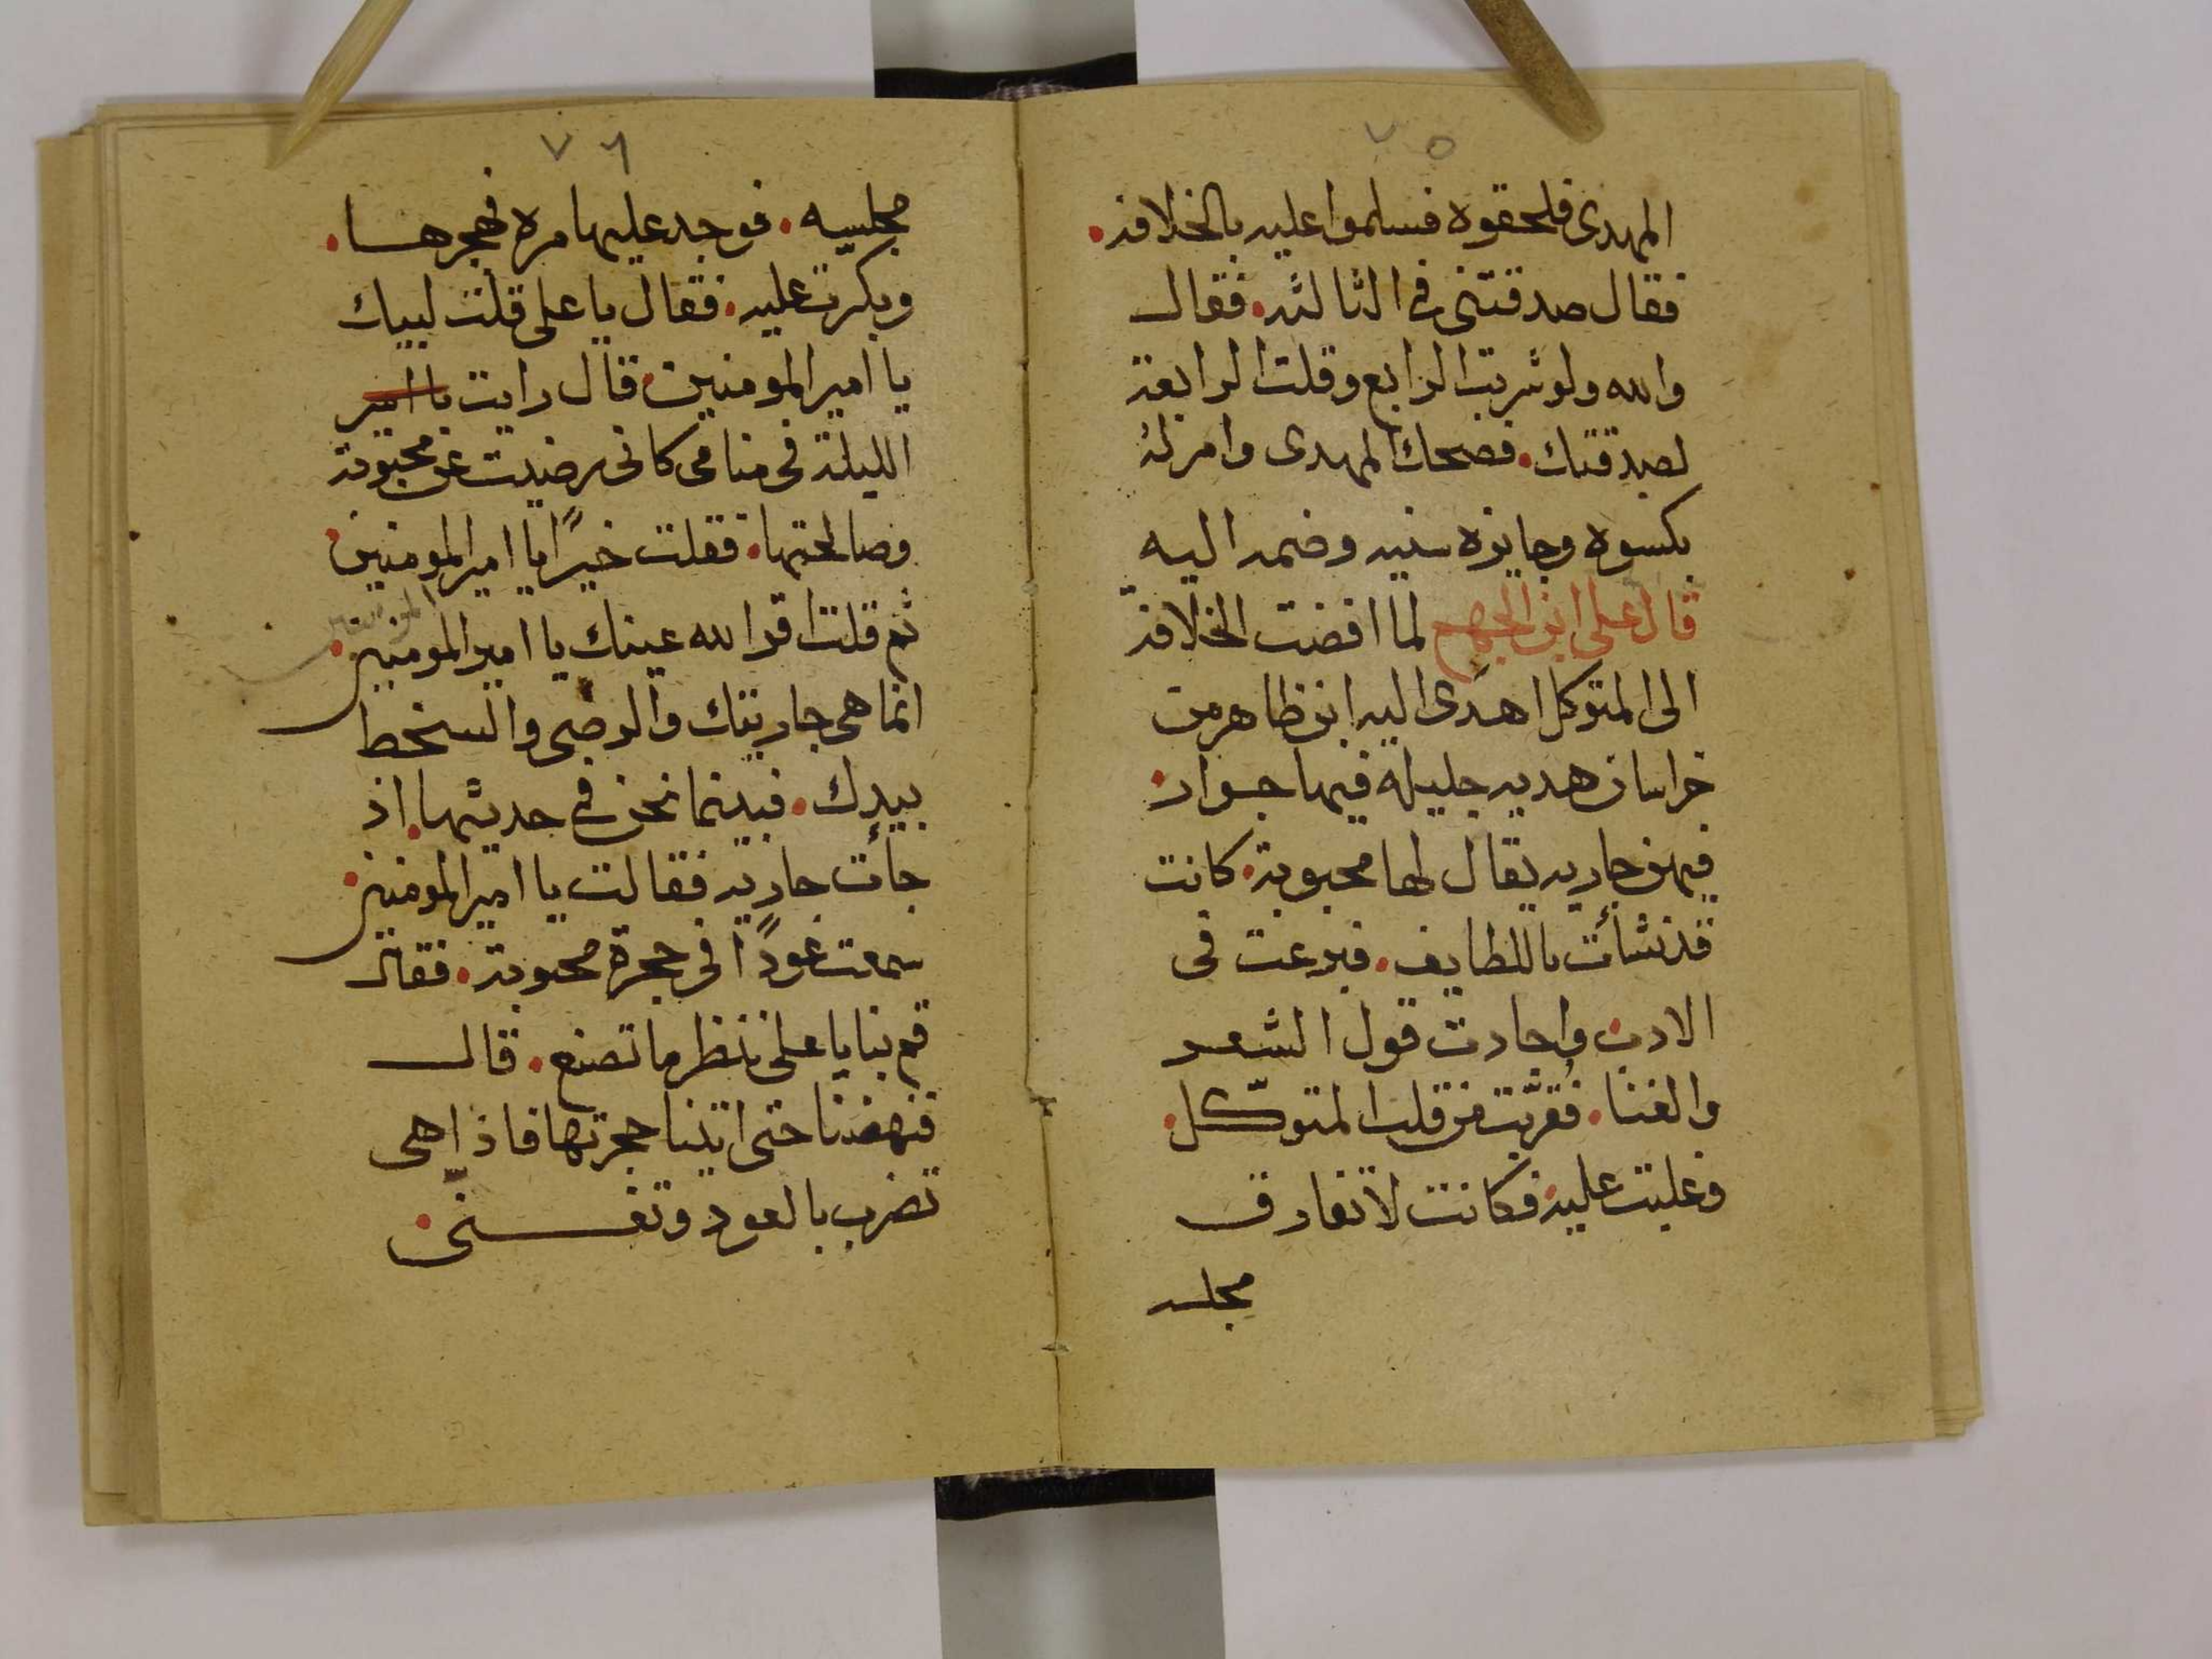 ٧٥
المهدى فلحقوه فسلموا عليه بالخلافه.
فقال صدقتنى فى الثالثه. فقال
والله ولو شربت الرابع وقلت الرابعة
لصدقتك. فضحك المهدى وامر له
بكسوه وجايزه سنيه وضمه اليه
قال على ابن الجهم لما افضت الخلافة
الى المتوكل اهدى اليه ابن ظاهر من
خراسان هديه جليله فيها جوار.
فيهن جاريه يقال لها محبوبة. كانت
قد نشأت باللطايف. فبرعت فى
الادب واجادت قول الشعر
والغنا. فقربت من قلب المتوكل.
وغلبت عليه فكانت لا تفارق
مجلسه
٧٦
مجلسه. فوجد عليها مره فهجرها.
وبكرت عليه. فقال يا على قلت لبيك
يا امير المومنين. قال رايت يا امير
الليلة فى منامى كانى رضيت عن محبوبة
وصالحتها. فقلت خيرًا يا امير المومنين.
ثم قلت اقر الله عينك يا امير المومنين.
انما هى جاريتك والرضى والسخط
بيدك. فبينما نحن فى حديثها. اذ
جأت جاريه فقالت يا امير المومنين.
سمعت عودًا فى حجرة محبوبة. فقال
قم بنا يا على ننظر ما تصنع. قال
فنهضنا حتى اتينا حجرتها فاذا هى
تضرب بالعود وتغنى.